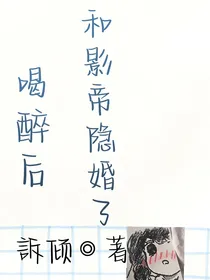 喝醉后
和影帝隐婚了
訴倾◎著